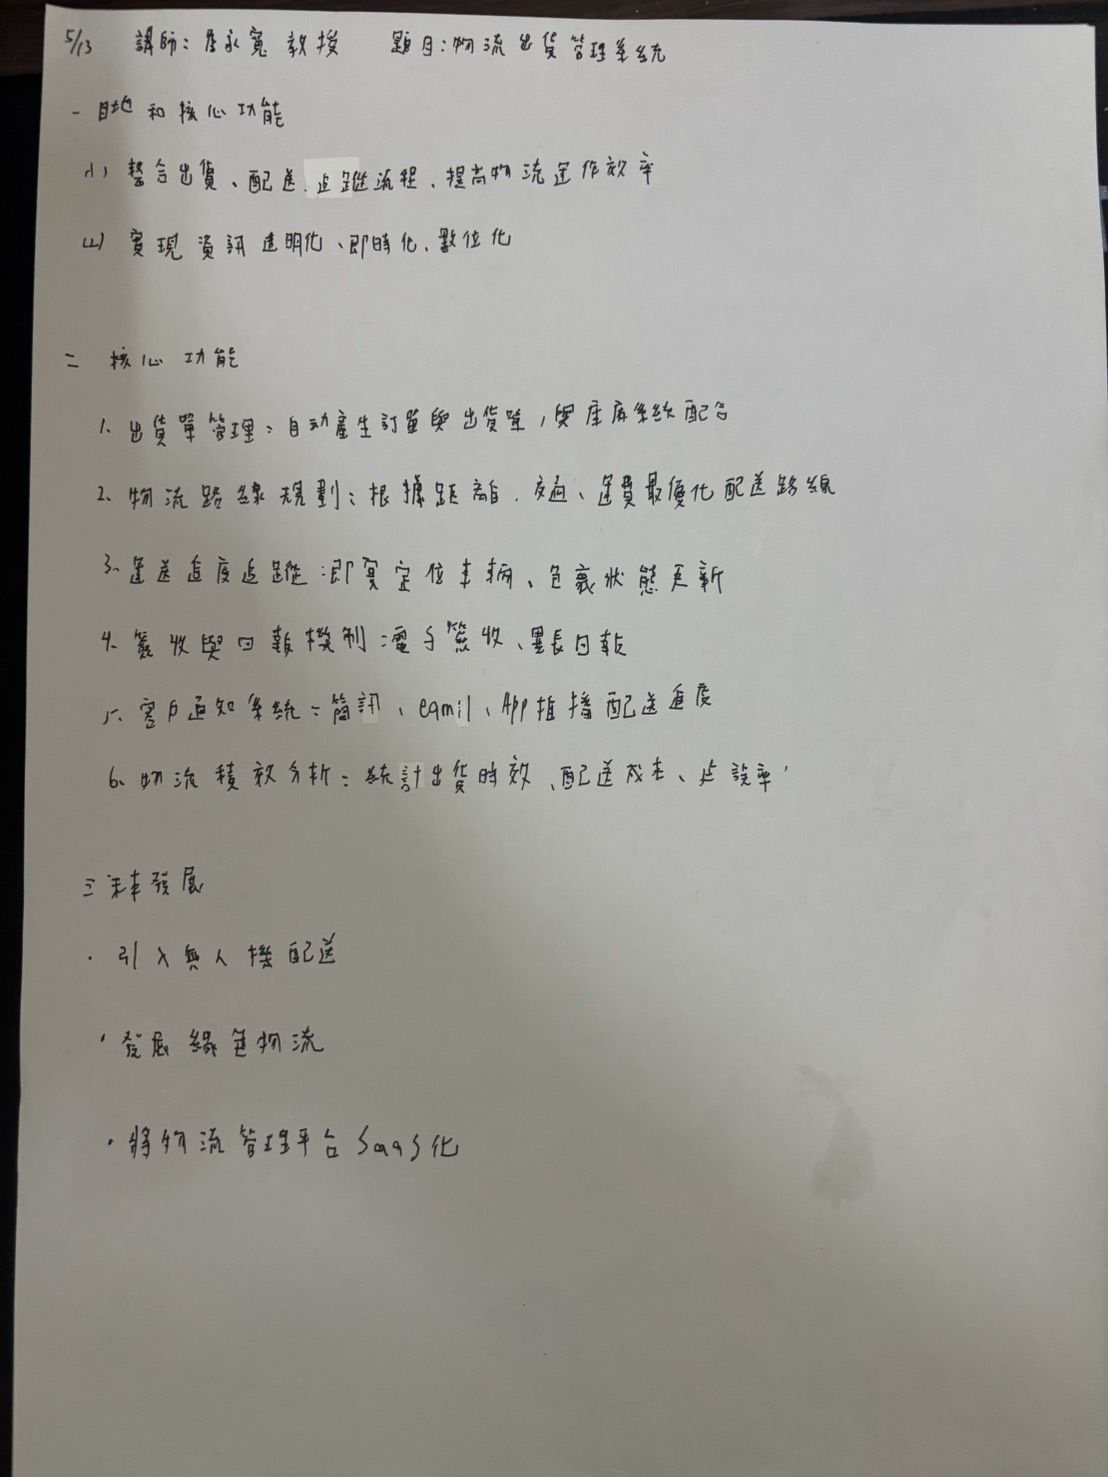 5/13 講師:詹永寬教授 題目:物流出貨管理系統
一 目地和核心功能
(1) 整合出貨、配送、追蹤流程、提高物流運作效率
(2) 實現資訊透明化、即時化、數位化
二 核心功能
1. 出貨單管理:自动產生訂單與出貨單,與庫存系統配合
2. 物流路線規劃:根據距離、交通、運費最優化配送路線
3. 運送進度追蹤:即實定位車輛、包裹狀態更新
4. 簽收與回報機制:電子簽收、異長回報
5. 客戶通知系統:簡訊、eamil、App推播配送進度
6. 物流積效分析:統計出貨時效、配送成本、
三 未來發展
· 引入無人機配送
· 發展綠色物流
· 將物流管理平台SaaS化